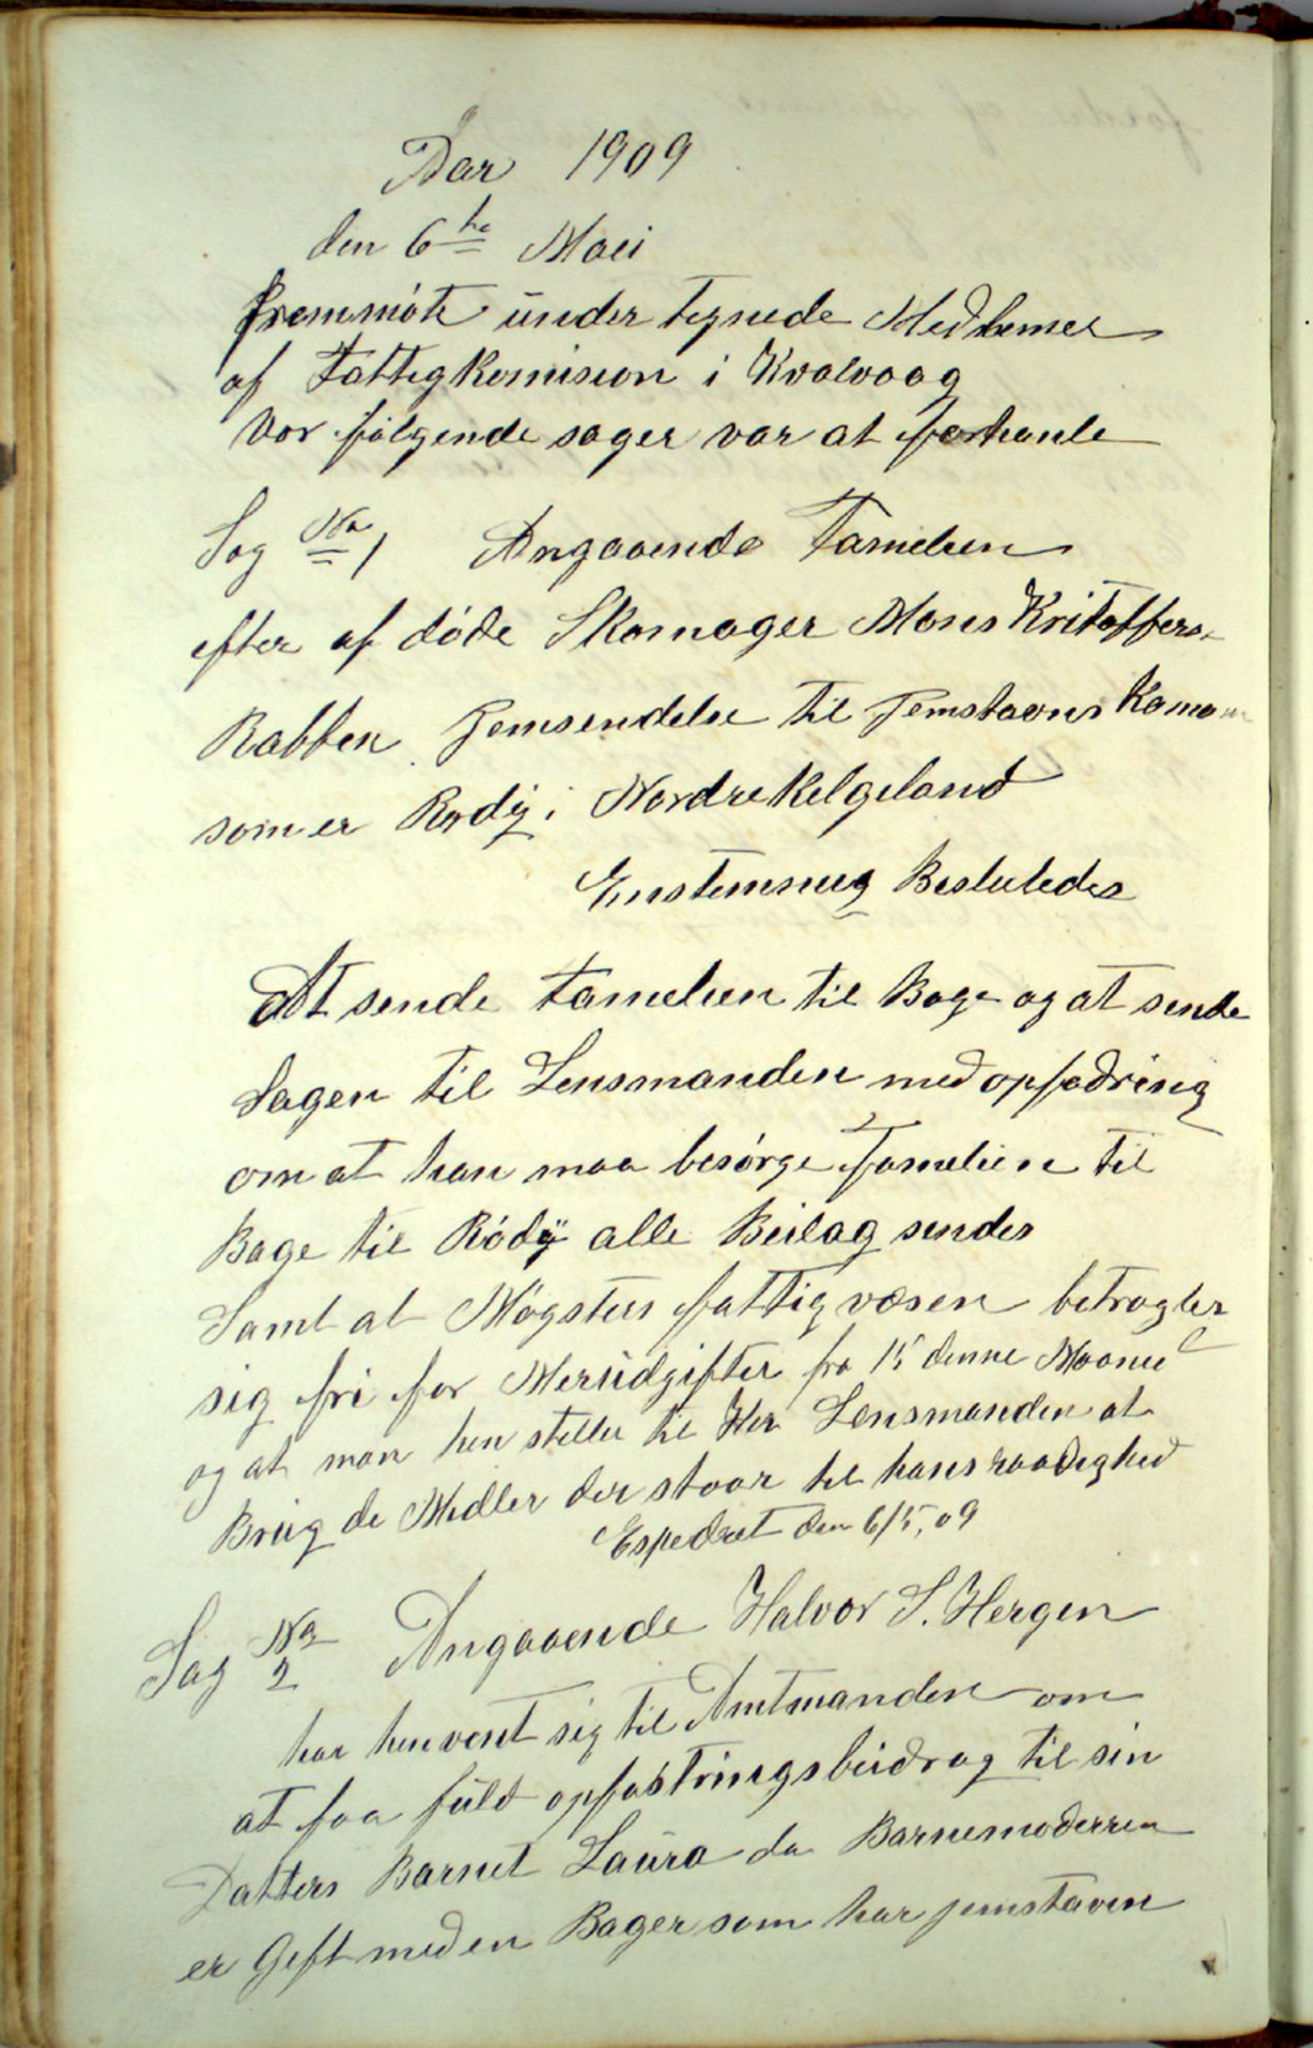 Aar 1909
den 6te Maei
fremmöte under tegnede Medlemer
af Fattigkomision i Kvalvaag
Vor fölgende sager var at forhanle
Sag No 1 Angaaende Familien
efter af döde Skomager Mons Kritoffers.
Rabben Jemsendelse til Jemstavns Komm
som er Rödÿ i Nordre Helgeland
Enstemmig Besluledes
At sende Familien til Bage og at sende
Sagen til Lensmanden med opfodring
om at han maa besörge Familien til
Bage til Rödÿ alle Beilag sendes
Samt at Mögsters fattigvæsen betragter
sig fri for Merudgifter fra 15 denne Maaned
og at man hen stiller til Her Lensmanden at
Brug de Midler der staar til hans raadighed
Espedret den 6/5, 09
Sag No 2 Angaaende Halvor S. Hergen
har henvent sig til Amtmanden om
at faa fuld opfostringsbeidrag til sin
Datters Barnet Laura da Barnemoderren
er Gift med en Bager som har jemstaven